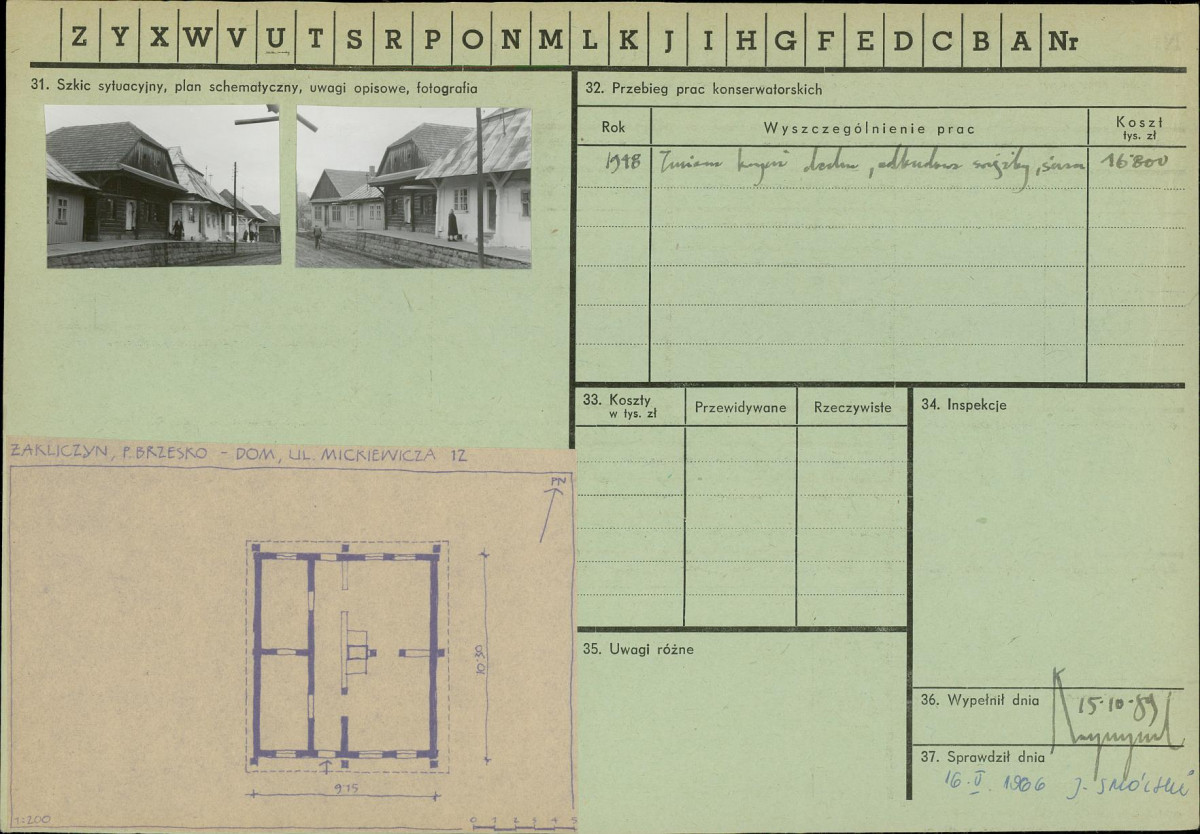 Z Y X W V U T S R P O N M L K J I H G F E D C B A Nr
31. Szkic sytuacyjny, plan schematyczny, uwagi opisowe, fotografia
32. Przebieg prac konserwatorskich
Rok Wyszczególnienie prac Koszt tys. zł
Zmiana dachu, odbudowa 16.800
ZAKLICZYN, P. BRZESKO - DOM, UL. MICKIEWICZA 12
PN
10.30
9.15
1=200
0 1 2 3 4 5
33. Koszty w tys. zł Przewidywane Rzeczywiste
34. Inspekcje
35. Uwagi różne
36. Wypełnił dnia
15.10.
37. Sprawdził dnia
16. V. 1966 J.